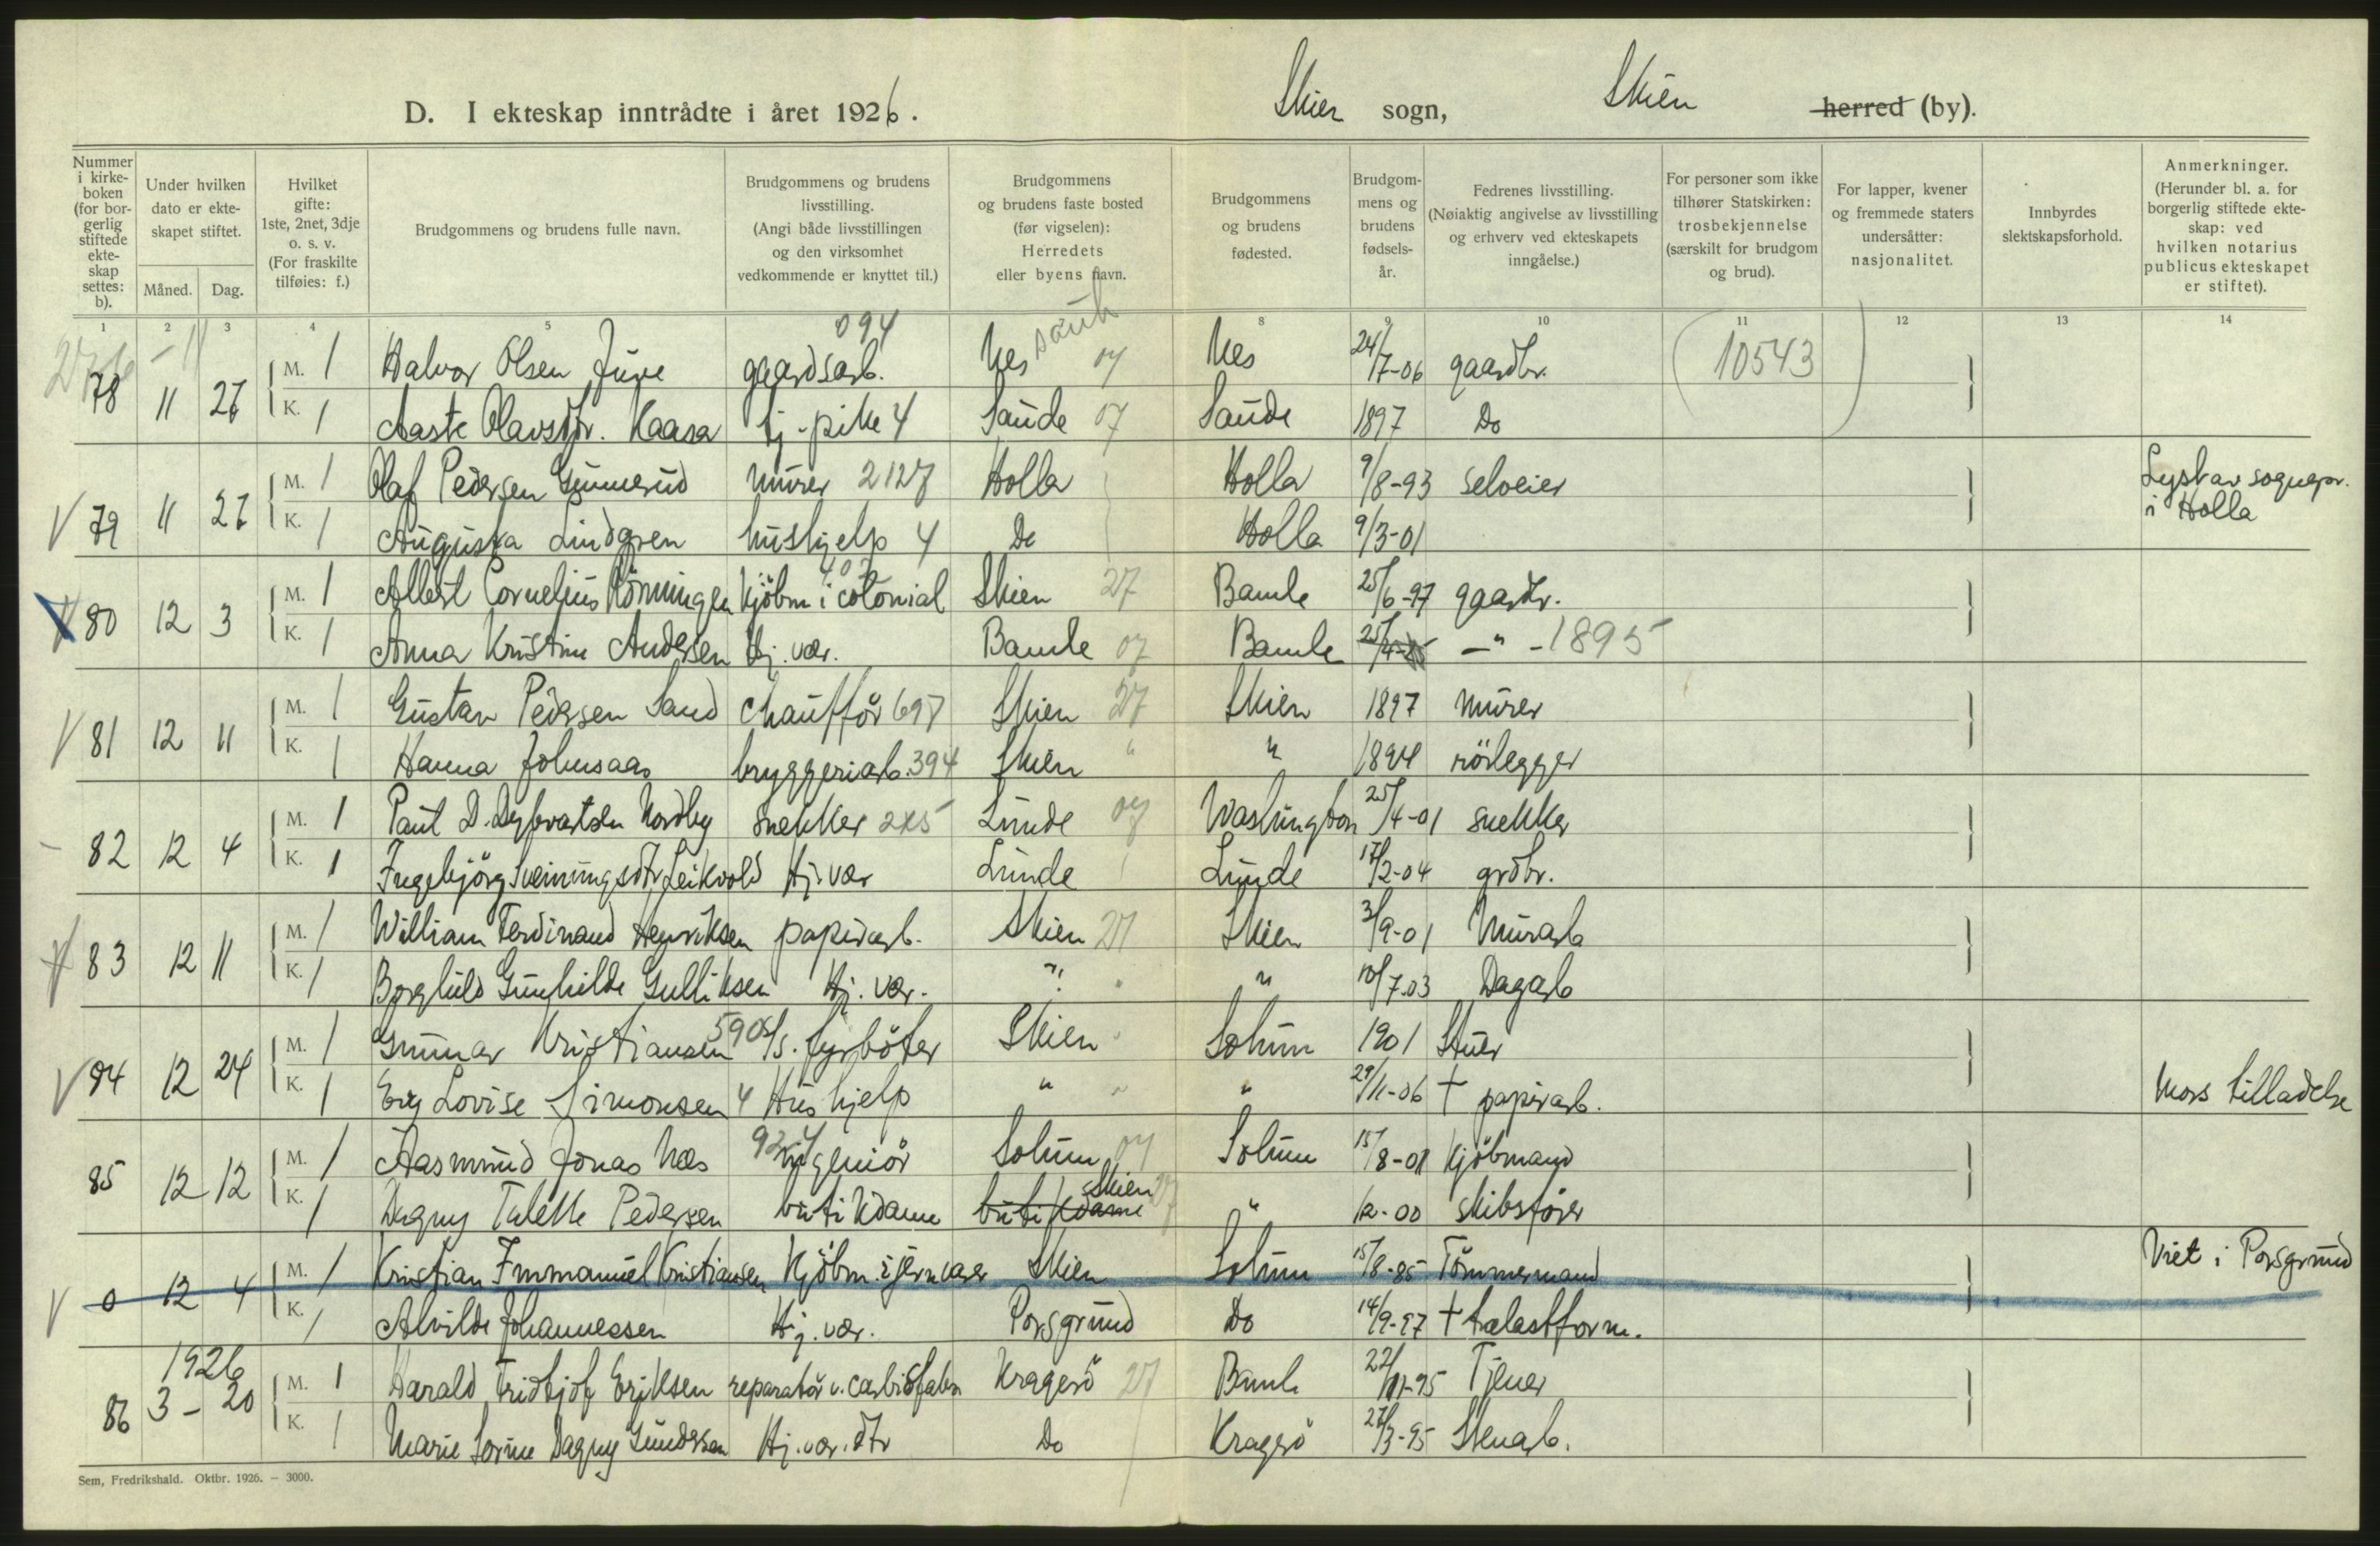 D. I ekteskap inntrådte i året 1926.
Skien sogn, Skien herred (by).
Nummer i kirkeboken (for borgerlig stiftede ekteskap settes: b).
Under hvilken dato er ekteskapet stiftet.
Måned. Dag.
Hvilket gifte: 1ste, 2net, 3dje o. s. v. (For fraskilte tilføies: f.)
Brudgommens og brudens fulle navn.
Brudgommens og brudens livsstilling. (Angi både livsstillingen og den virksomhet vedkommende er knyttet til.)
Brudgommens og brudens faste bosted (før vigselen): Herredets eller byens navn.
Brudgommens og brudens fødested.
Brudgommens og brudens fødselsår.
Fedrenes livsstilling. (Nøiaktig angivelse av livsstilling og erhverv ved ekteskapets inngåelse.)
For personer som ikke tilhører Statskirken: trosbekjennelse (særskilt for brudgom og brud).
For lapper, kvener og fremmede staters undersåtter: nasjonalitet.
Innbyrdes slektskapsforhold.
Anmerkninger. (Herunder bl. a. for borgerlig stiftede ekteskap: ved hvilken notarius publicus ekteskapet er stiftet).
1 2 3 4 5 8 9 10 11 12 13 14
78 11 27 M. 1 Halvor Olsen Juve gaardsarb. 094 Nes 07 Nes 24/7-06 gaardbr. (10543)
K. 1 Aaste Olavsdtr. Kaasa tj.-pike 4 Saude 07 Saude 1897 Do
V 79 11 27 M. 1 Olaf Pedersen Gunnerud murer 2127 Holla Holla 9/8-93 selveier Lyst av sognepr. i Holla
K. 1 Augusta Lindgren hushjelp 4 Do Holla 9/3-01
80 12 3 M. 1 Albert Cornelius Rönningen kjöbm i colonial 407 Skien 27 Bamle 25/6-97 gaardbr.
K. 1 Anna Kristine Andersen Hj. vær. Bamle 07 Bamle -"- 1895
V 81 12 11 M. 1 Gustav Pedersen Sand chaufför 697 Skien 27 Skien 1897 murer
K. 1 Hanna Johnsaas bryggeriarb. 394 Skien " " rörlegger
- 82 12 4 M. 1 Paul D. Dybvartsen Nordby snekker Lunde 07 Washington 25/4-01 snekker
K. 1 Ingebjörg Sveinungsdtr Leikvold Hj. vær Lunde Lunde 17/2-04 grdbr.
83 12 11 M. 1 William Ferdinand Henriksen papirarb. Skien 27 Skien 3/9-01 Murarb
K. 1 Borghild Gunhilde Gulliksen Hj. vær. " " 10/7.03 Dagarb
V 84 12 24 M. 1 Gunnar Kristiansen 590 d/s. fyrböter Skien Solum 1901 Stuer
K. 1 Evy Lovise Simonsen 4 Hushjelp " " 29/11-06 † papirarb. Mors tilladelse
85 12 12 M. 1 Aasmund Jonas Næs ingeniör Solum 07 Solum 15/8-01 Kjöbmand
K. 1 Dagny Pedersen butikdame butikdame Skien 27 " 12-00 skibsförer
V 0 12 4 M. 1 Kristian Immanuel Kristiansen Kjöbm. i jernvarer Skien Solum 15/8-85 Tömmermand Viet i Porsgrund
K. 1 Alvilde Johannessen Hj. vær. Porsgrund Do 14/9-97 † trelastform.
1926
86 3 - 20 M. 1 Harald Fridtjof Eriksen reparatör v. carbidfabr Kragerö 27 Bamle 22/11-95 Tjener
K. 1 Marie Sorine Dagny Gundersen Hj. vær. dtr Do Kragerö 27/3-95 Stenarb.
Sem, Fredrikshald. Oktbr. 1926. — 3000.